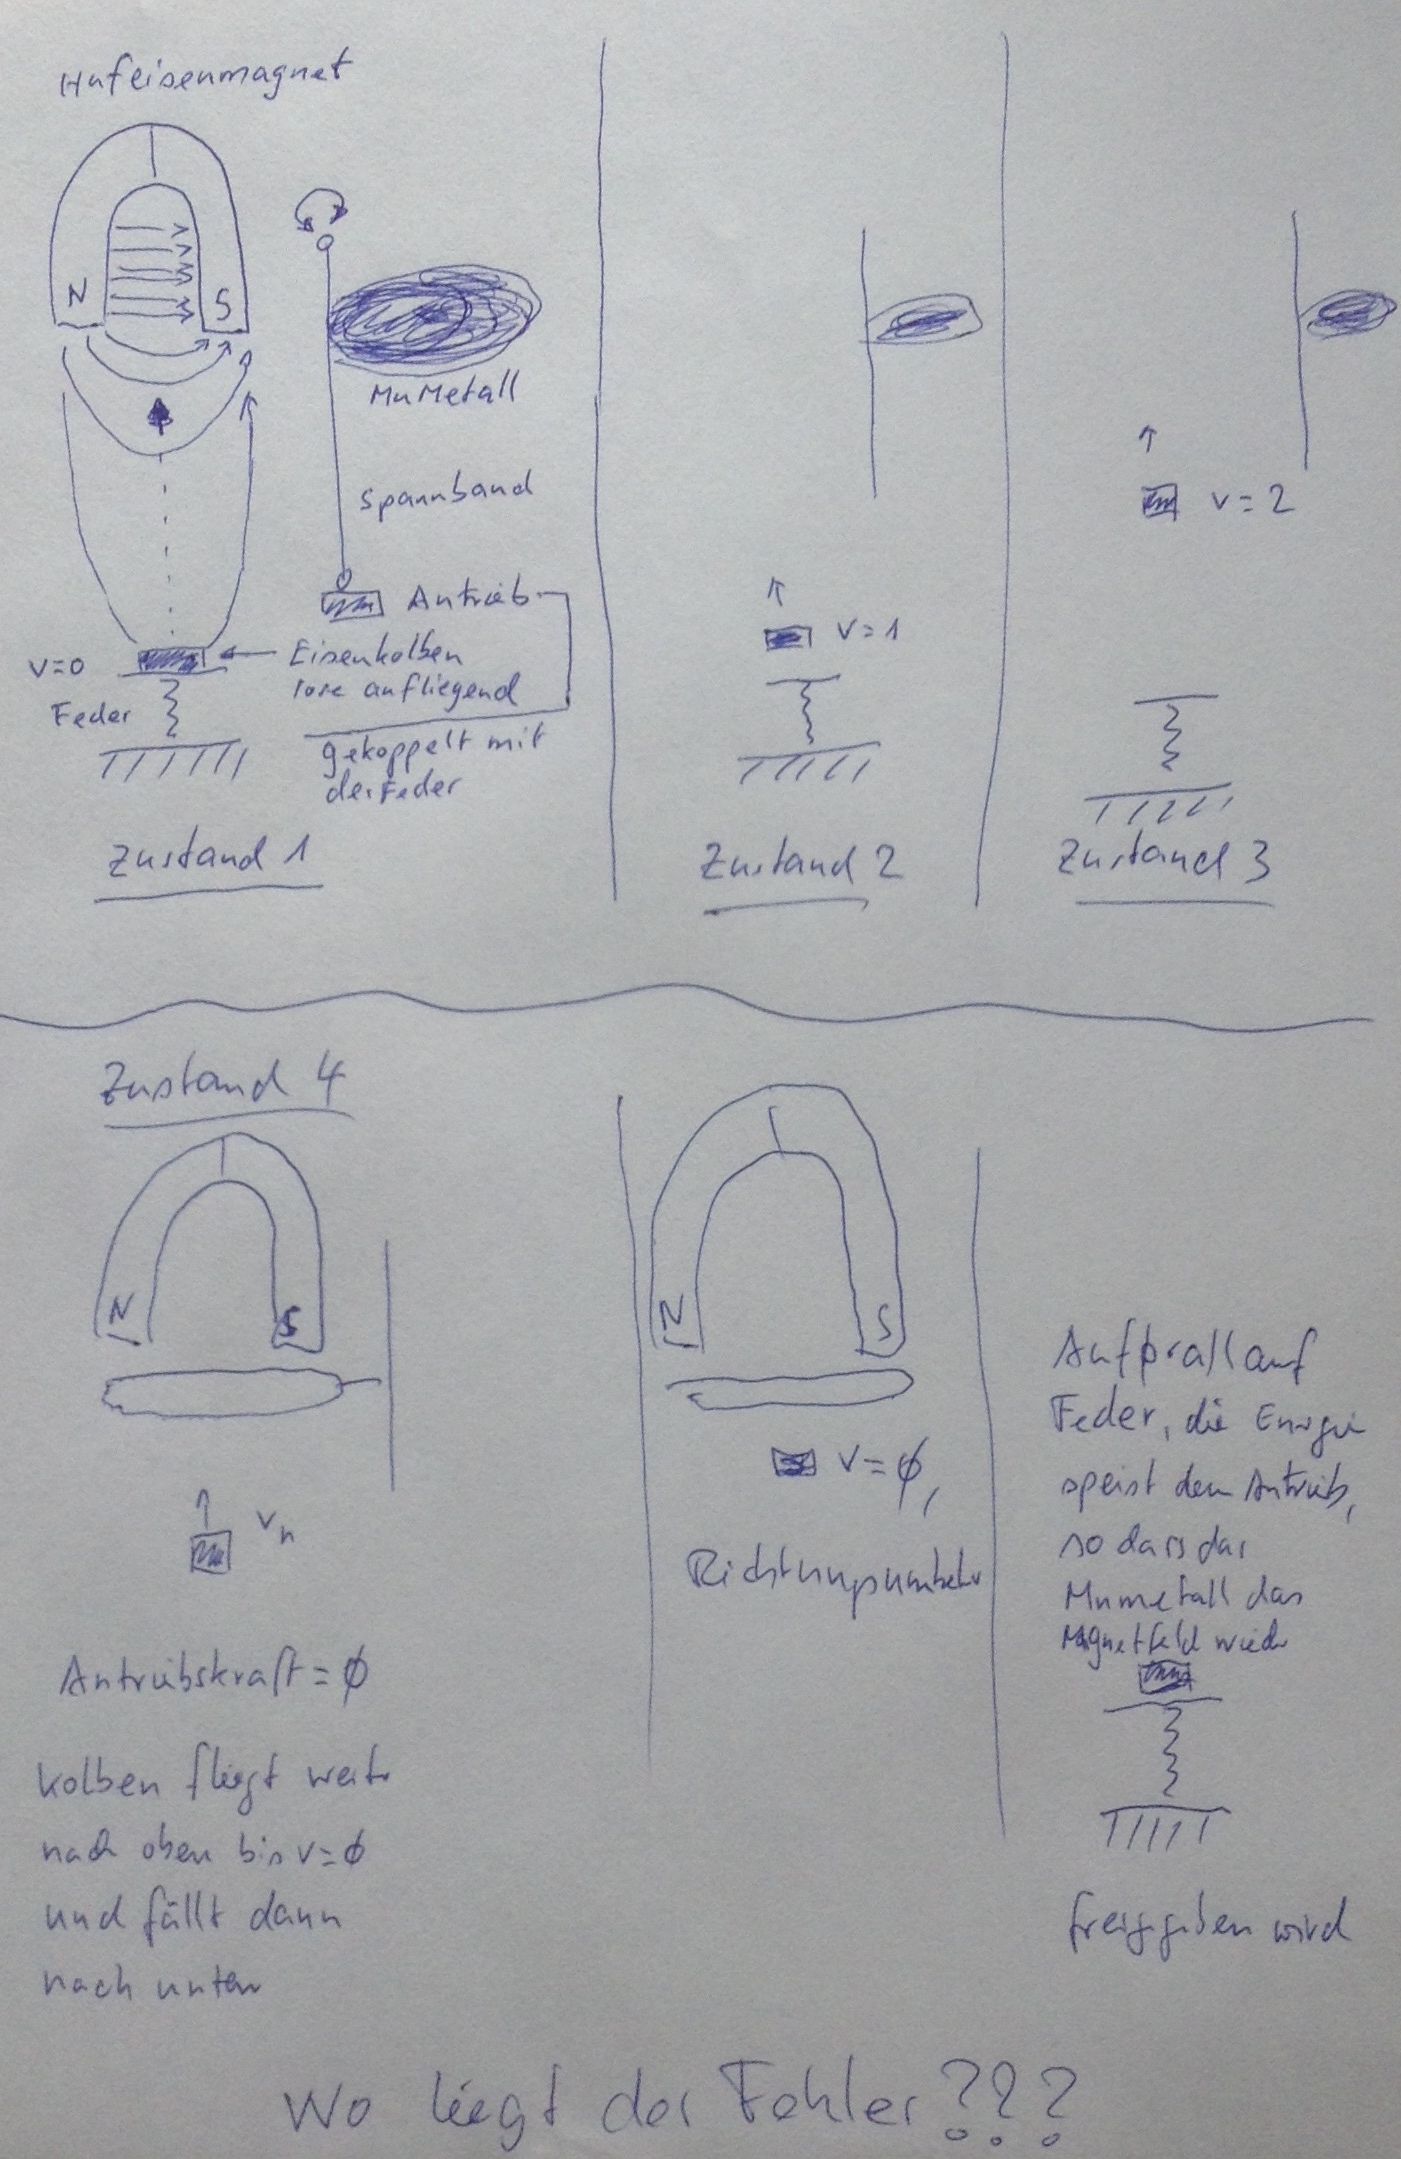 Hufeisenmagnet
N
S
MuMetall
Spannband
Antrieb
Eisenkolben
lose aufliegend
v=0
Feder
gekoppelt mit
der Feder
Zustand 1
v=1
Zustand 2
v=2
Zustand 3
Zustand 4
N
S
vn
Antriebskraft = ∅
Kolben fliegt weiter
nach oben bis v=∅
und fällt dann
nach unten
N
S
v=∅,
Richtungsumkehr
Aufprall auf
Feder, die Energie
speist den Antrieb,
so dass das
Mumetall das
Magnetfeld wieder
freigegeben wird
Wo liegt der Fehler???